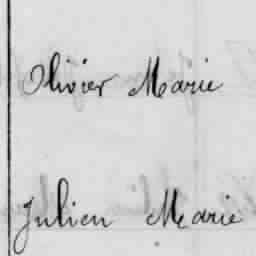 Olivier Marie
Julien Marie